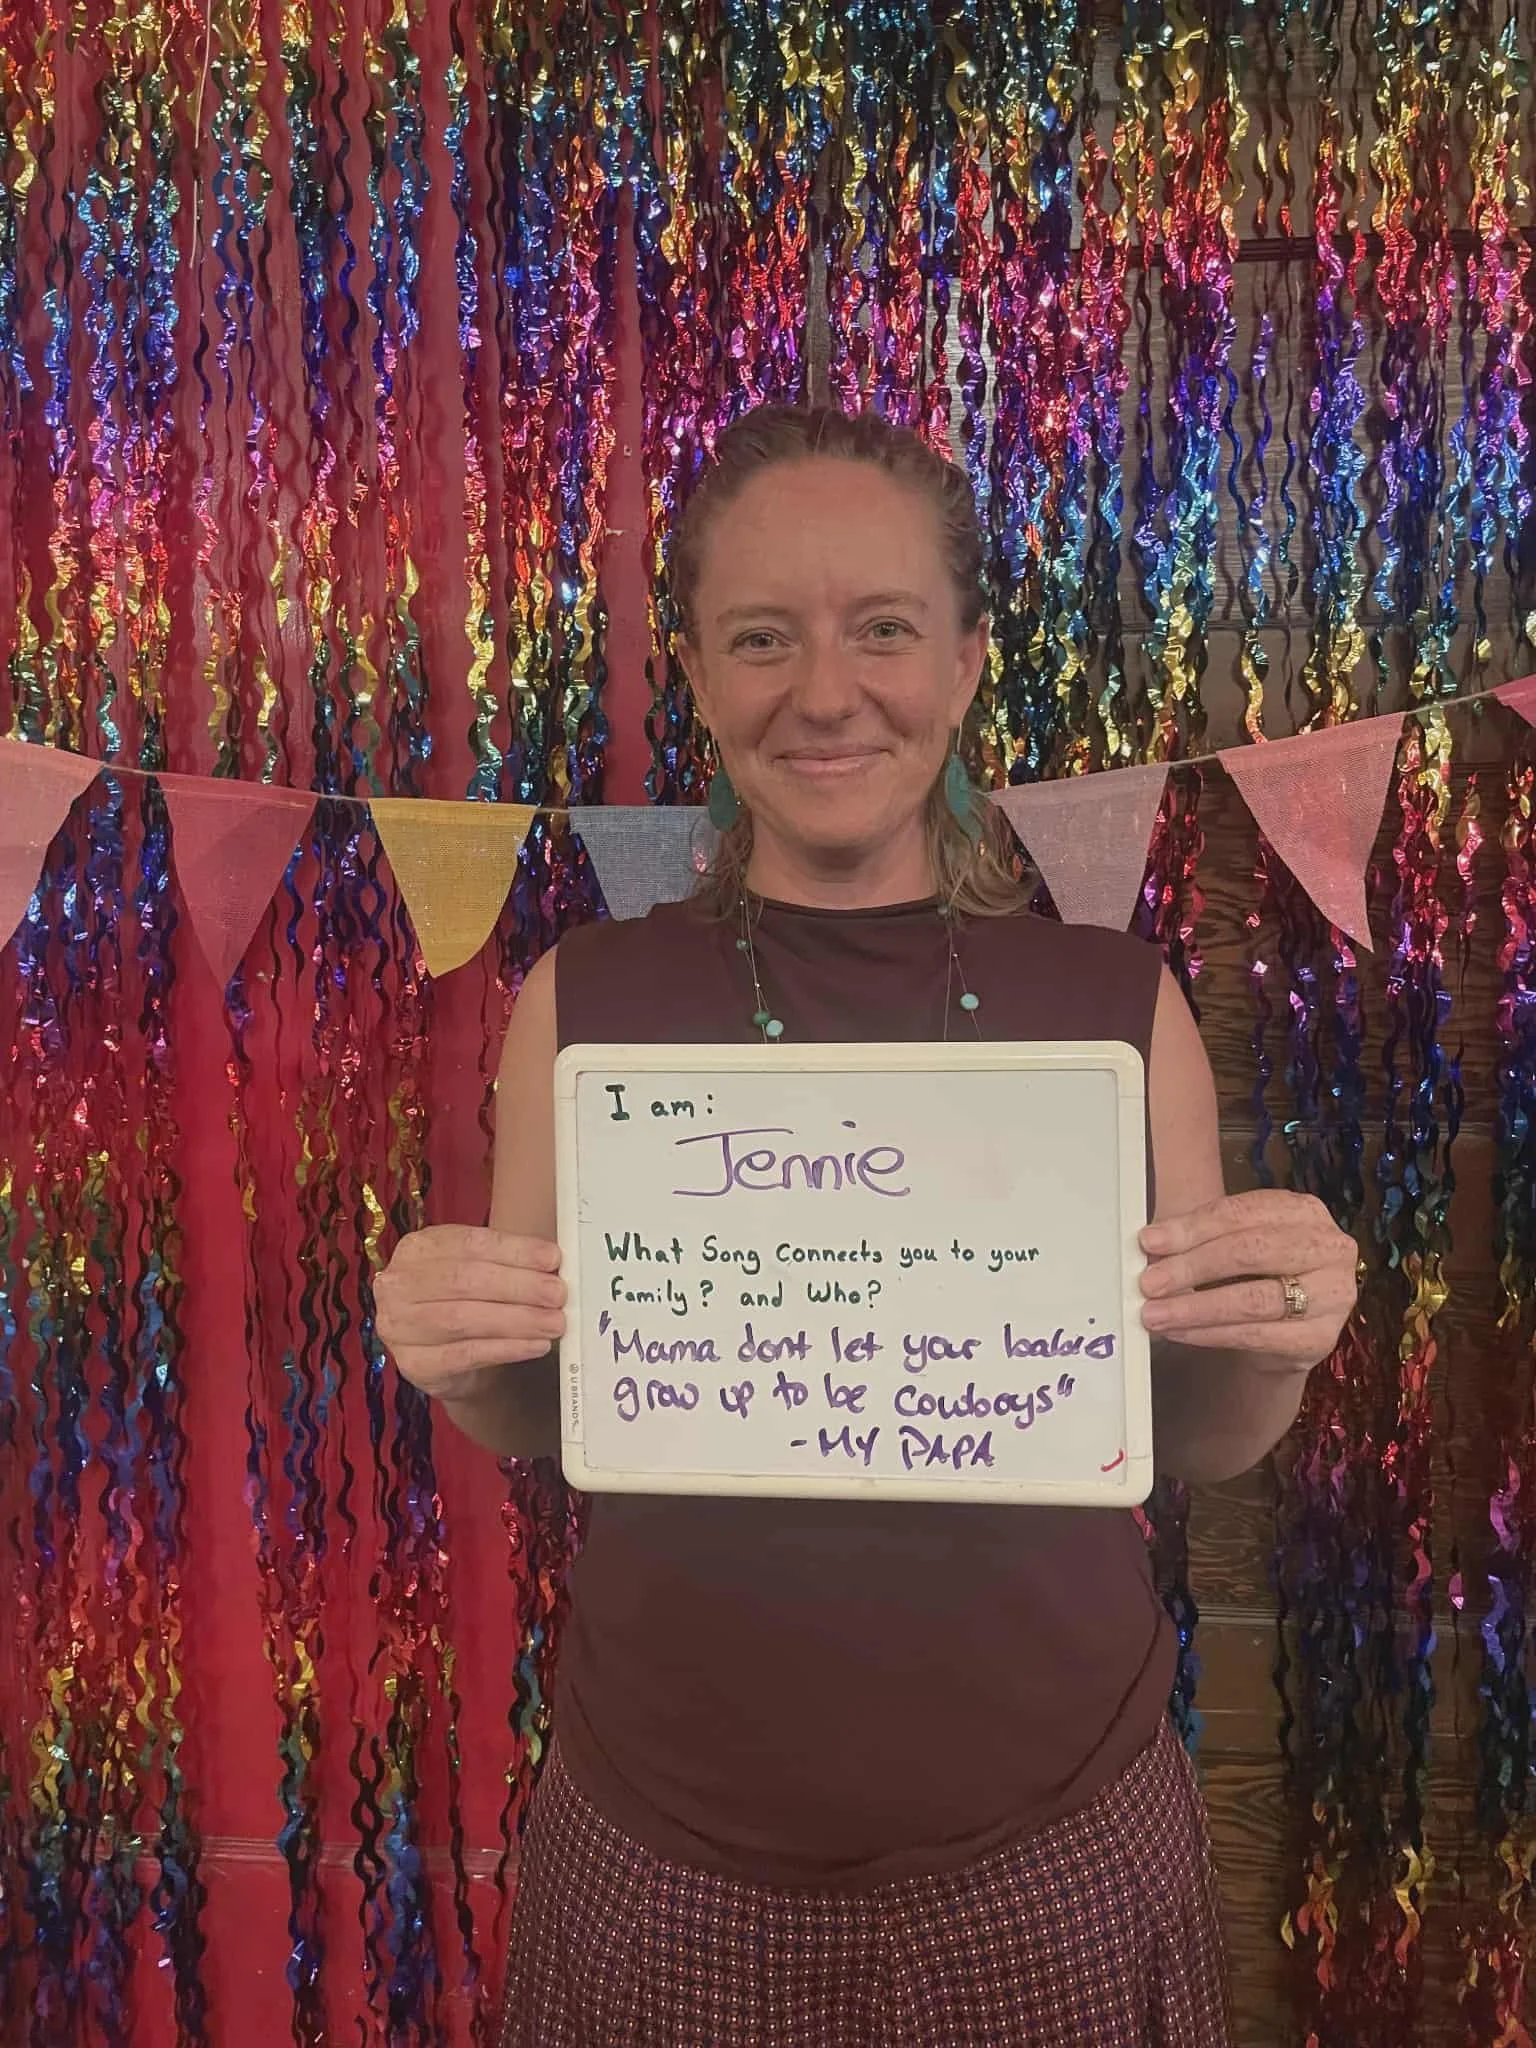 I am:
Jennie
What Song Connects you to your
family? and Who?
"Mama dont let your babies
grow up to be Cowboys"
- MY PAPA
® U BRANDS